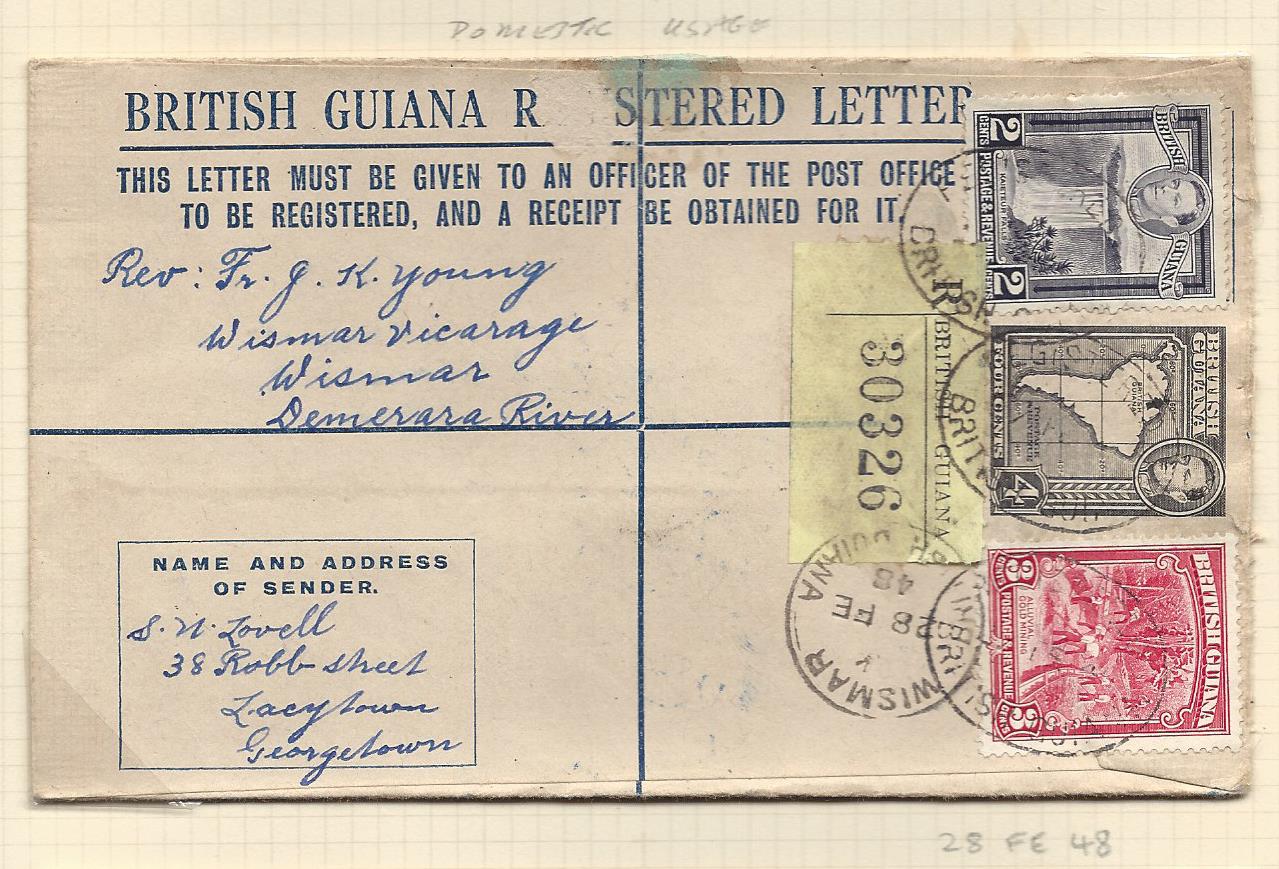 DOMESTIC USAGE
BRITISH GUIANA R STERED LETTER
THIS LETTER MUST BE GIVEN TO AN OFFICER OF THE POST OFFICE
TO BE REGISTERED, AND A RECEIPT BE OBTAINED FOR IT.
Rev: Fr. J. K. Young
Wismar Vicarage
Wismar
Demerara River
NAME AND ADDRESS
OF SENDER.
S. N. Lovell
38 Robb street
Lacytown
Georgetown
R
BRITISH GUIANA
30326
BRITISH GUIANA
2 CENTS POSTAGE & REVENUE CENTS 2
KAIETEUR FALLS
BRITISH GUIANA
BRITISH GUIANA
FOUR CENTS
4
BRITISH GUIANA
ALLUVIAL GOLD MINING
3 CENTS POSTAGE & REVENUE CENTS 3
WISMAR
28 FE
48
GUIANA
28 FE 48